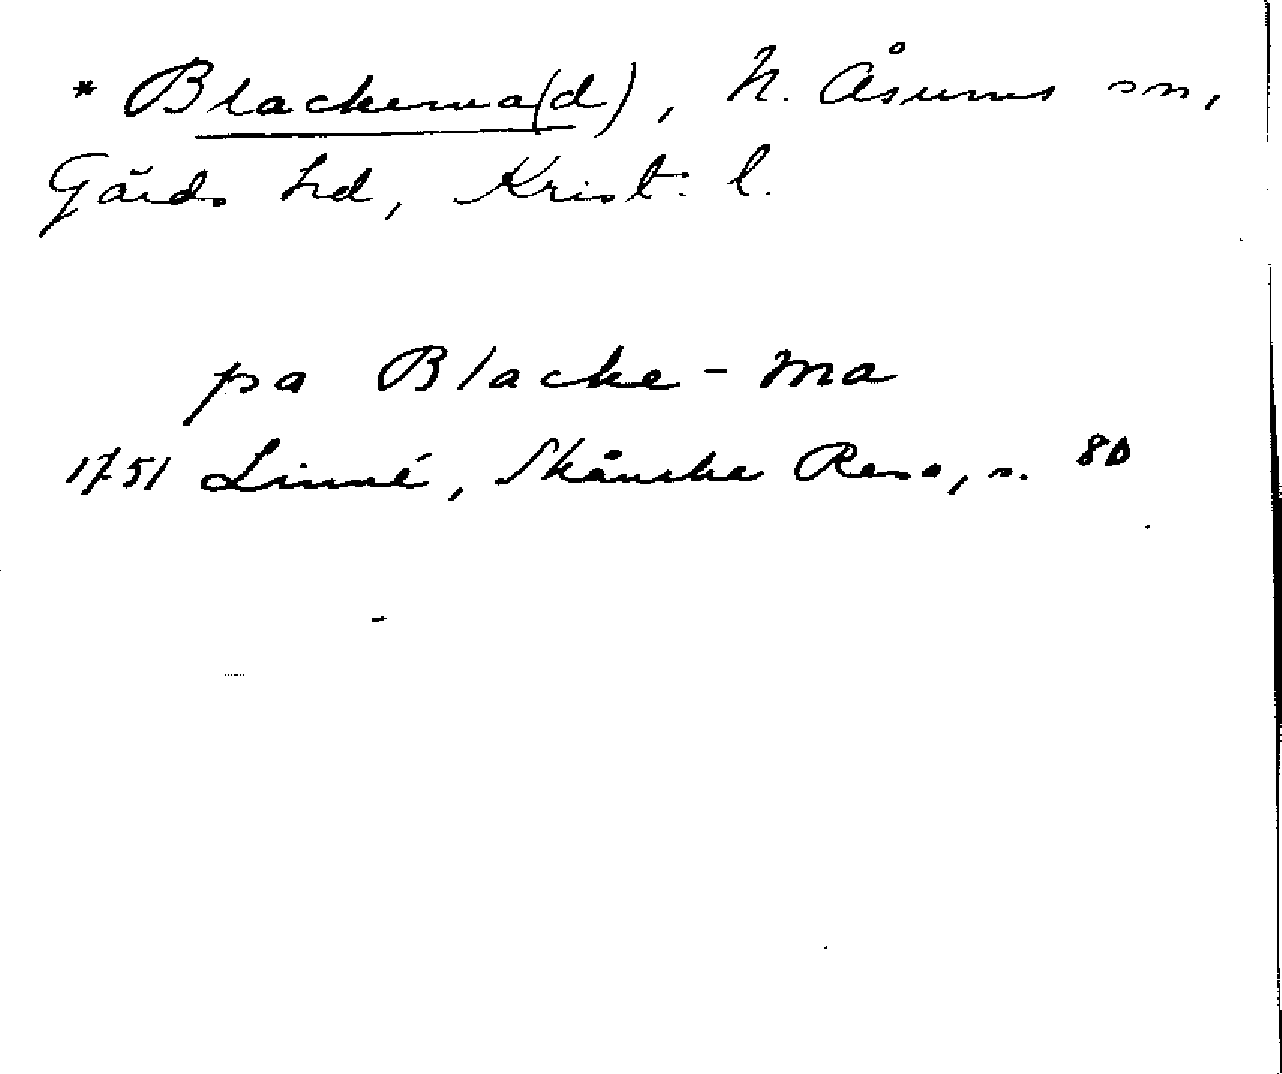 * Blackema(d), N. Åsums sn,
Gärds hd, Krist: l.
pa Blacke-Ma
1751 Linné, Skånska Resa, s. 80